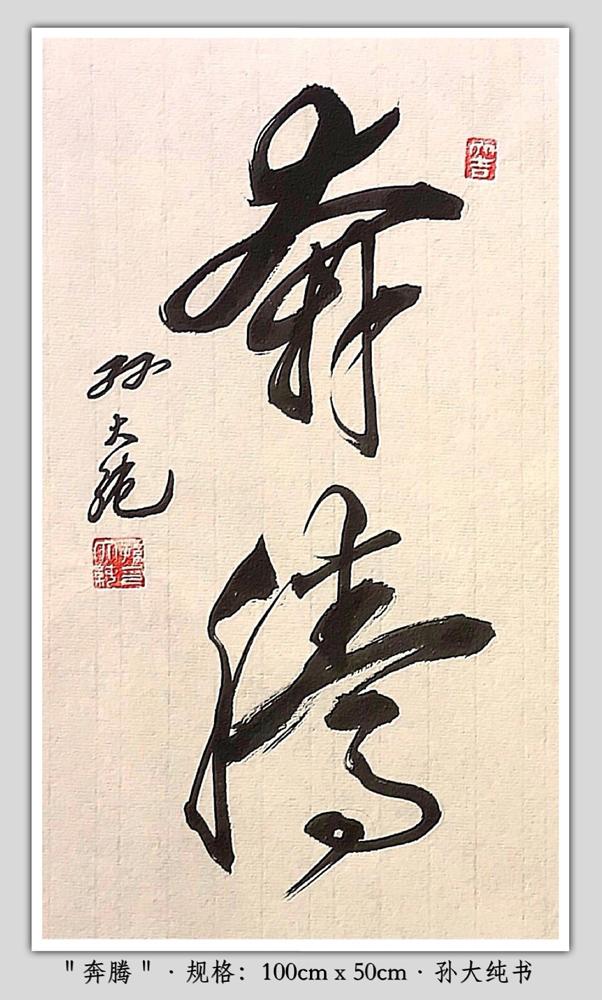 奔腾
孙大纯
大吉
"奔腾"·规格：100cm x 50cm·孙大纯书